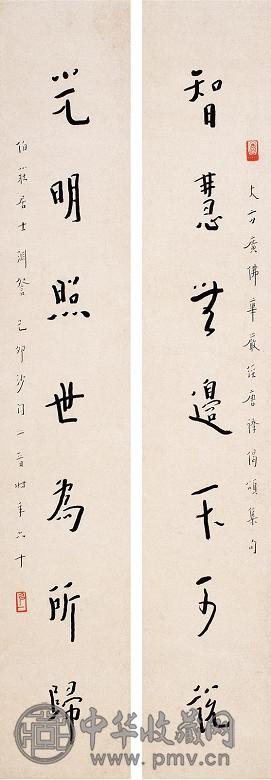 大方廣佛華嚴經唐譯偈頌集句
智慧無邊不可說
光明照世為所歸
伯莊居士 詧 己卯沙門一音時年六十
中华收藏网
www.pmv.cn